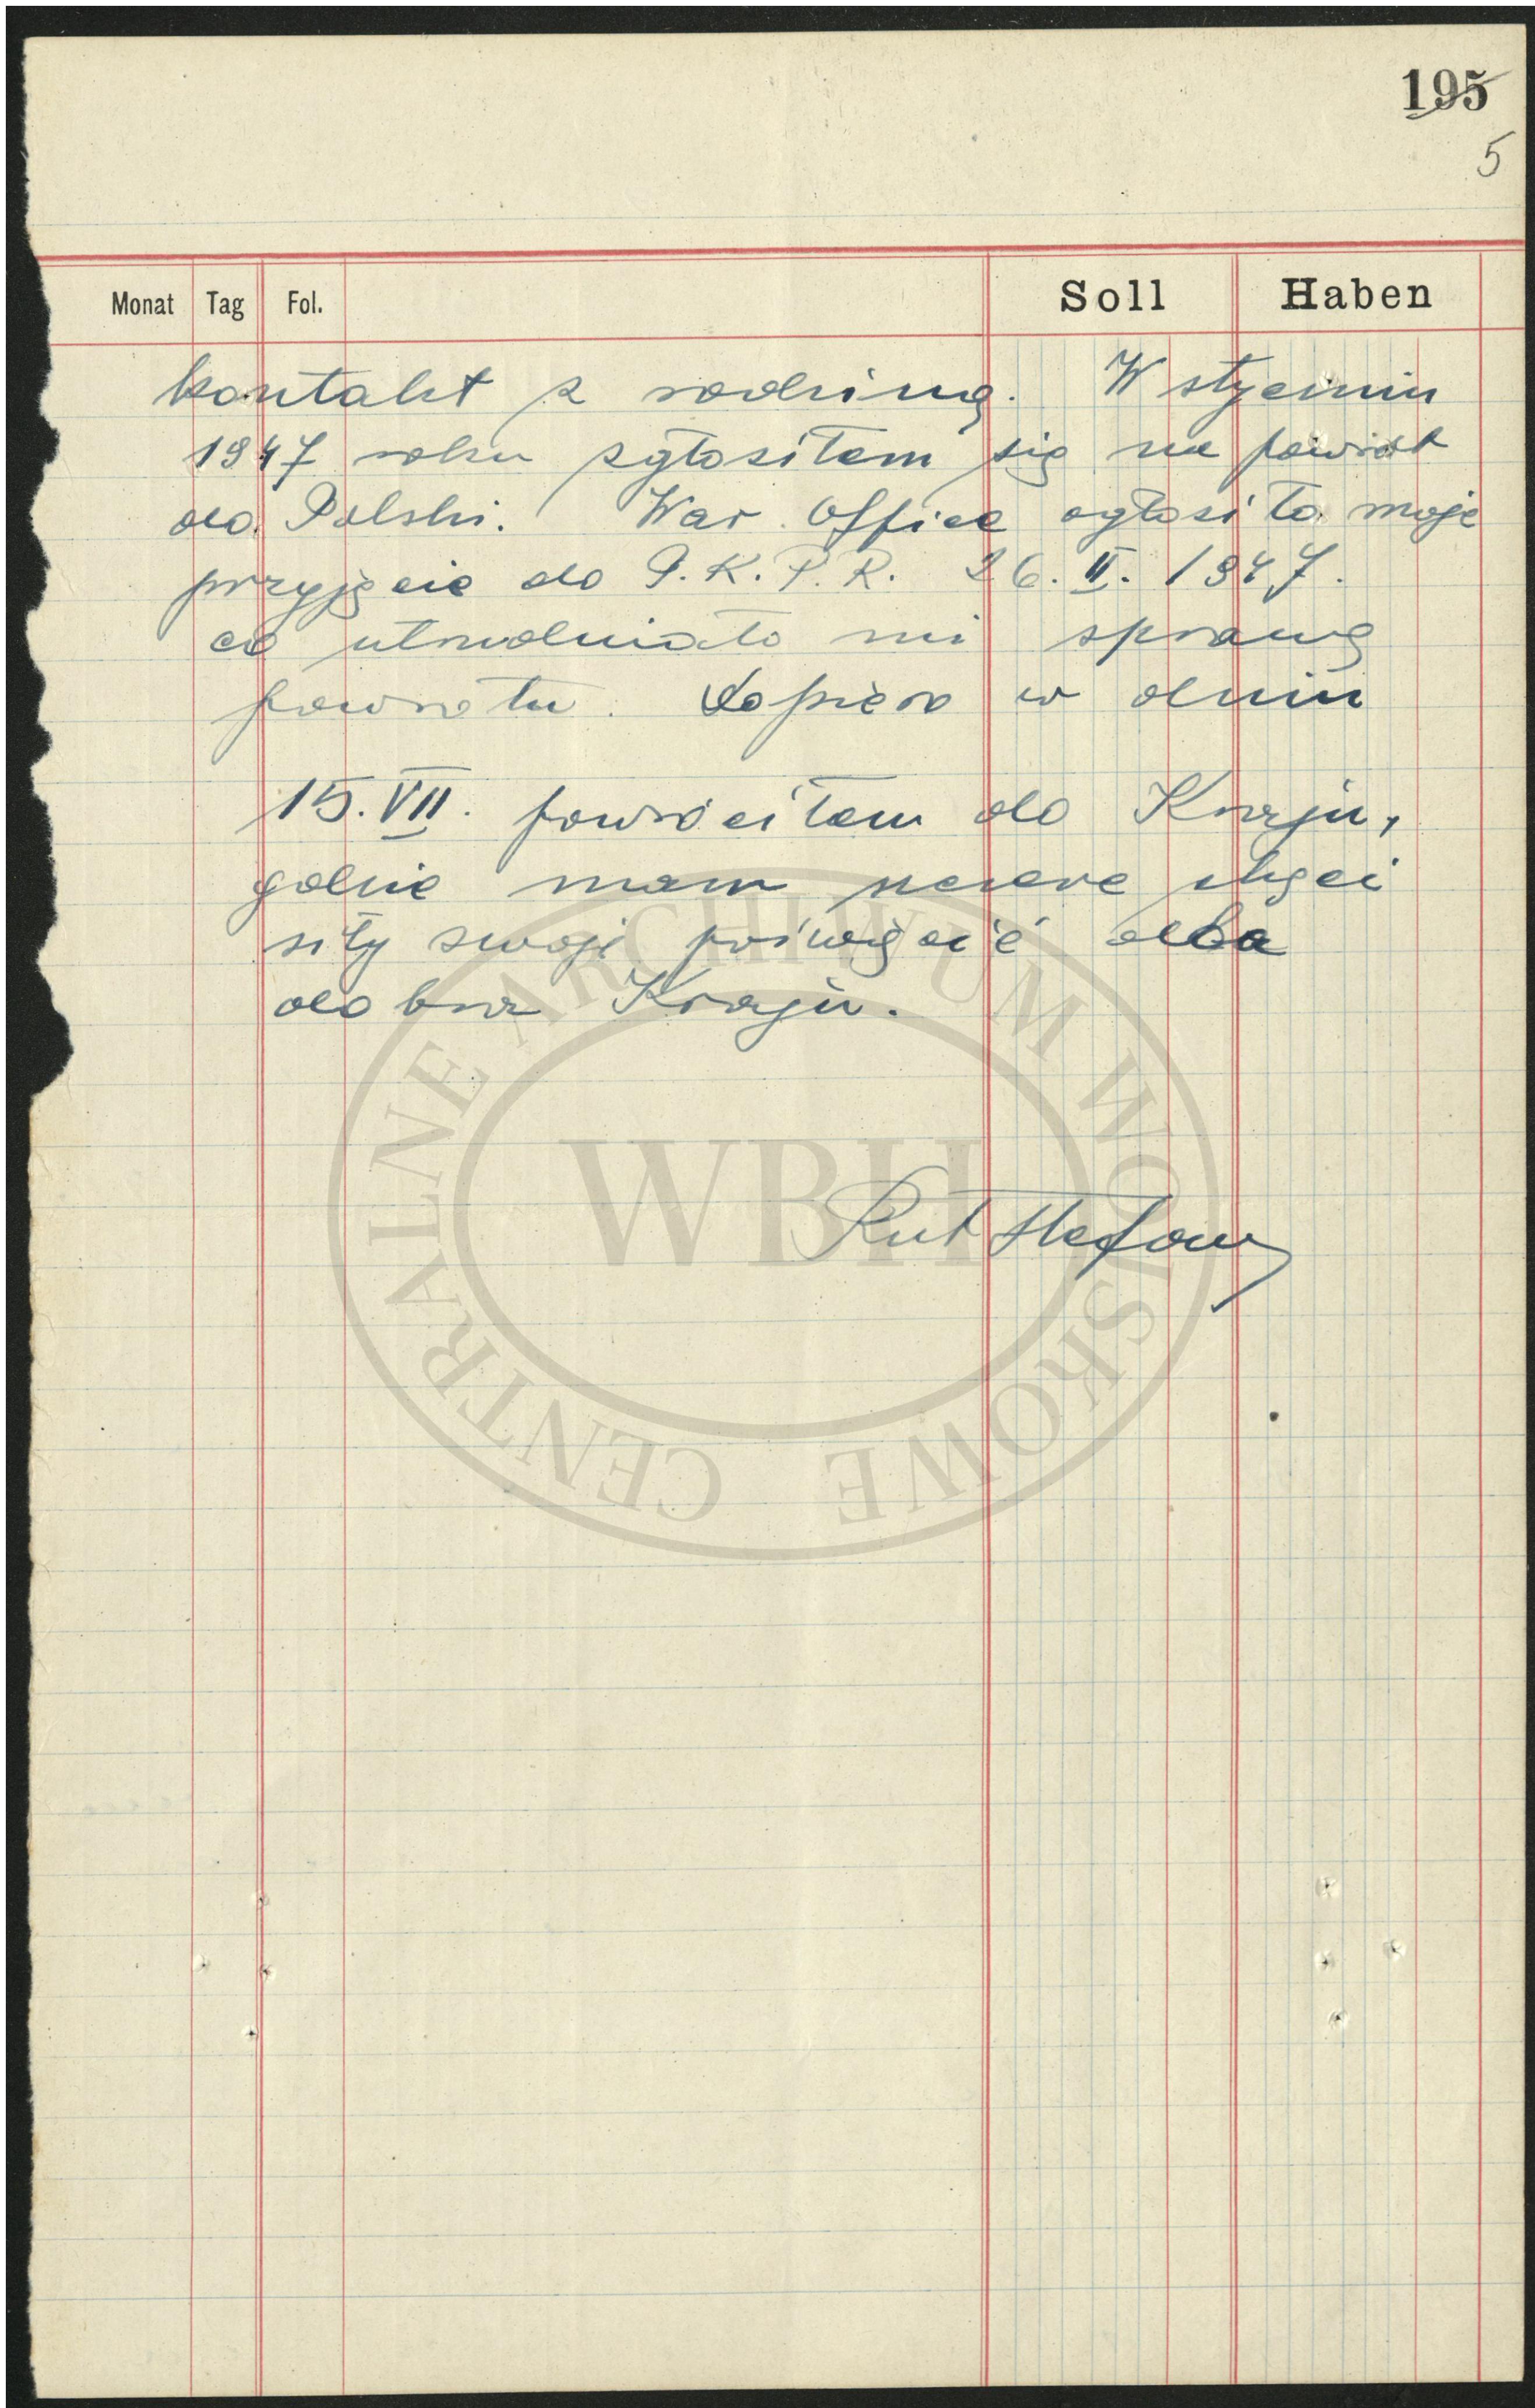 195
5
Monat Tag Fol. Soll Haben
kontakt z rodziną. W styczniu
1947 roku zgłosiłem się na powrót
do Polski. War Office ogłosiło moje
przyjęcie do P.K.P.R. 26.II.1947.
co utrudniało mi sprawę
powrotu. Dopiero w dniu
15.VII. powróciłem do Kraju,
gdzie mam szczere chęci
siły swoje poświęcić dla
dobra Kraju.
Rut Stefan
CENTRALNE ARCHIWUM WOJSKOWE
WBH